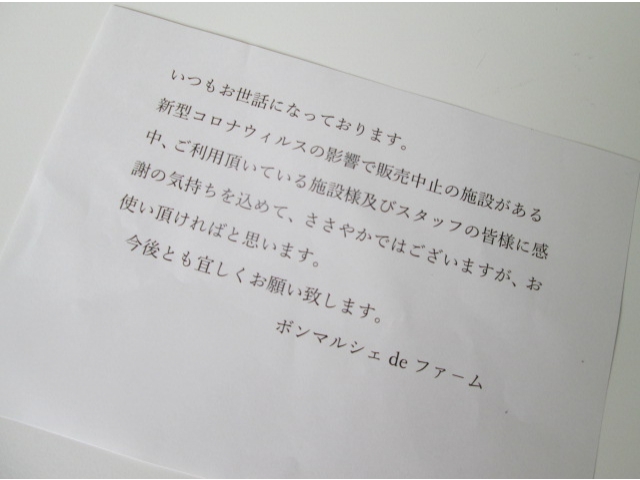 いつもお世話になっております。
新型コロナウィルスの影響で販売中止の施設がある
中、ご利用頂いている施設様及びスタッフの皆様に感
謝の気持ちを込めて、ささやかではございますが、お
使い頂ければと思います。
今後とも宜しくお願い致します。
ボンマルシェ de ファーム